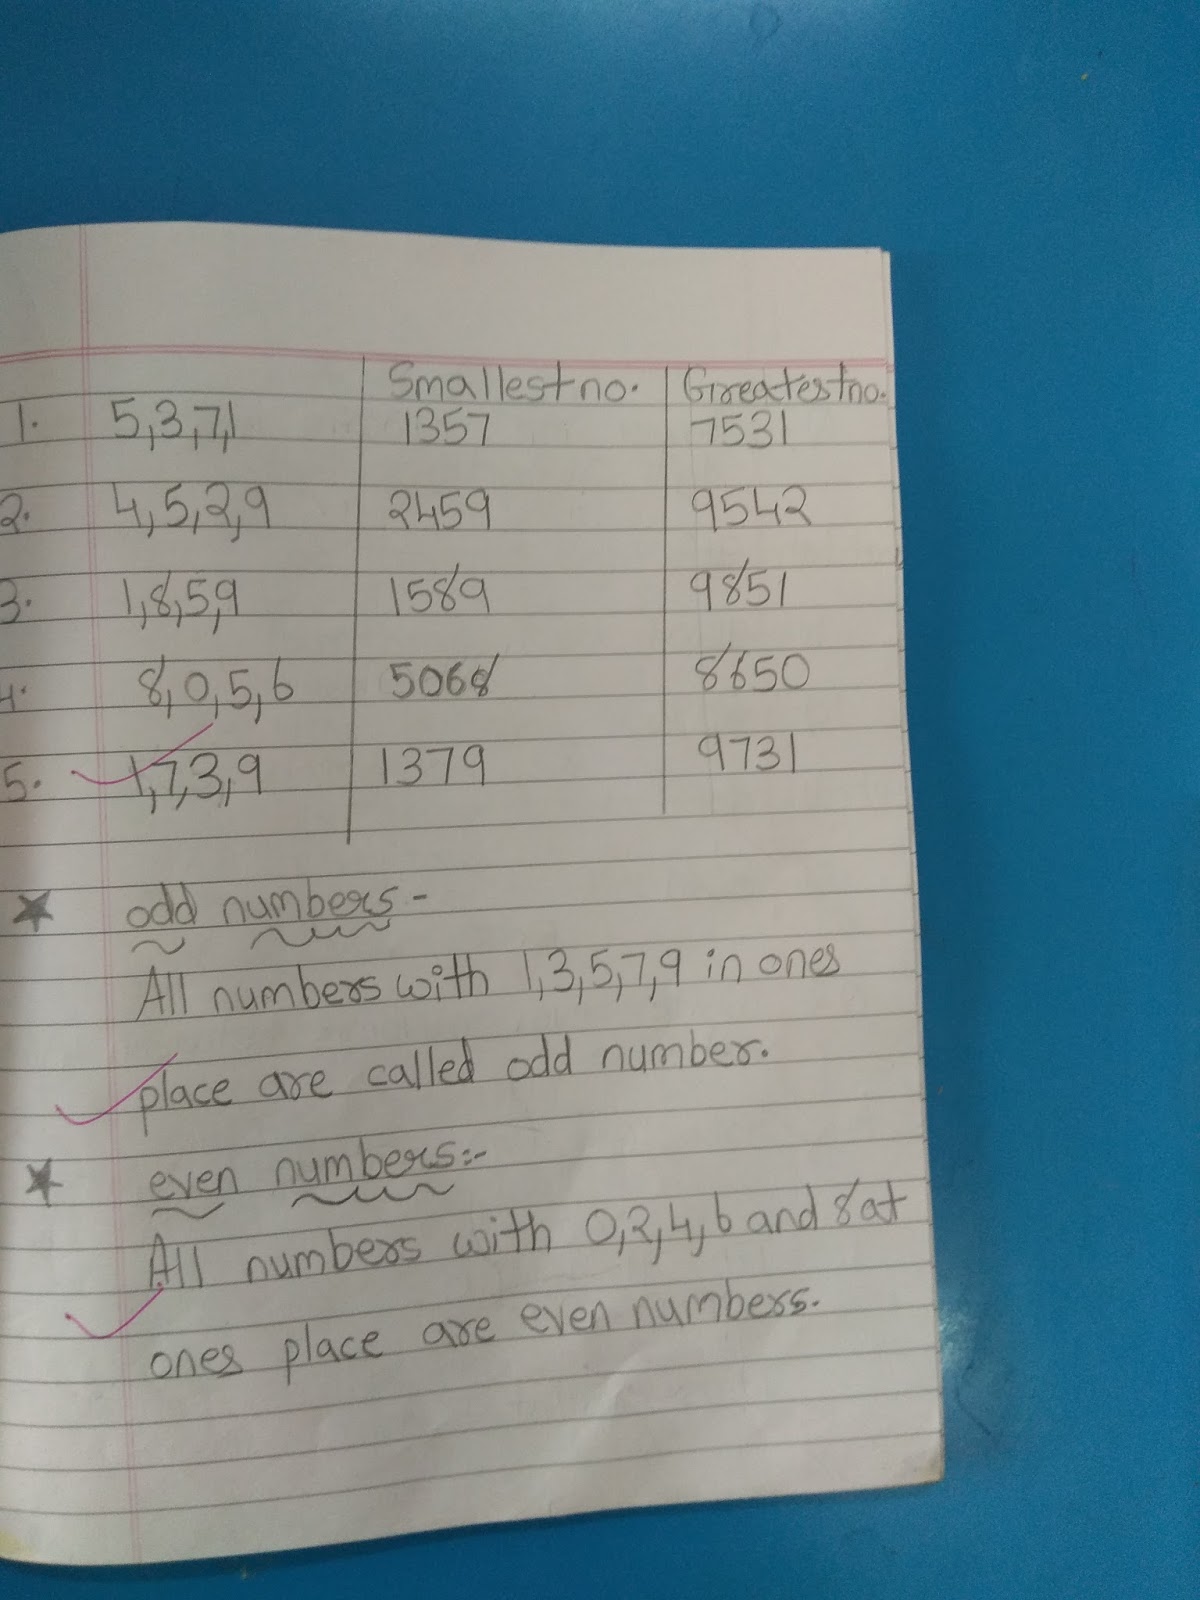 Smallest no. Greatest no.
1. 5,3,7,1 1357 7531
2. 4,5,2,9 2459 9542
3. 1,8,5,9 1589 9851
4. 8,0,5,6 5068 8650
5. 1,7,3,9 1379 9731
★ odd numbers -
All numbers with 1,3,5,7,9 in ones
place are called odd number.
★ even numbers:-
All numbers with 0,2,4,6 and 8 at
ones place are even numbers.